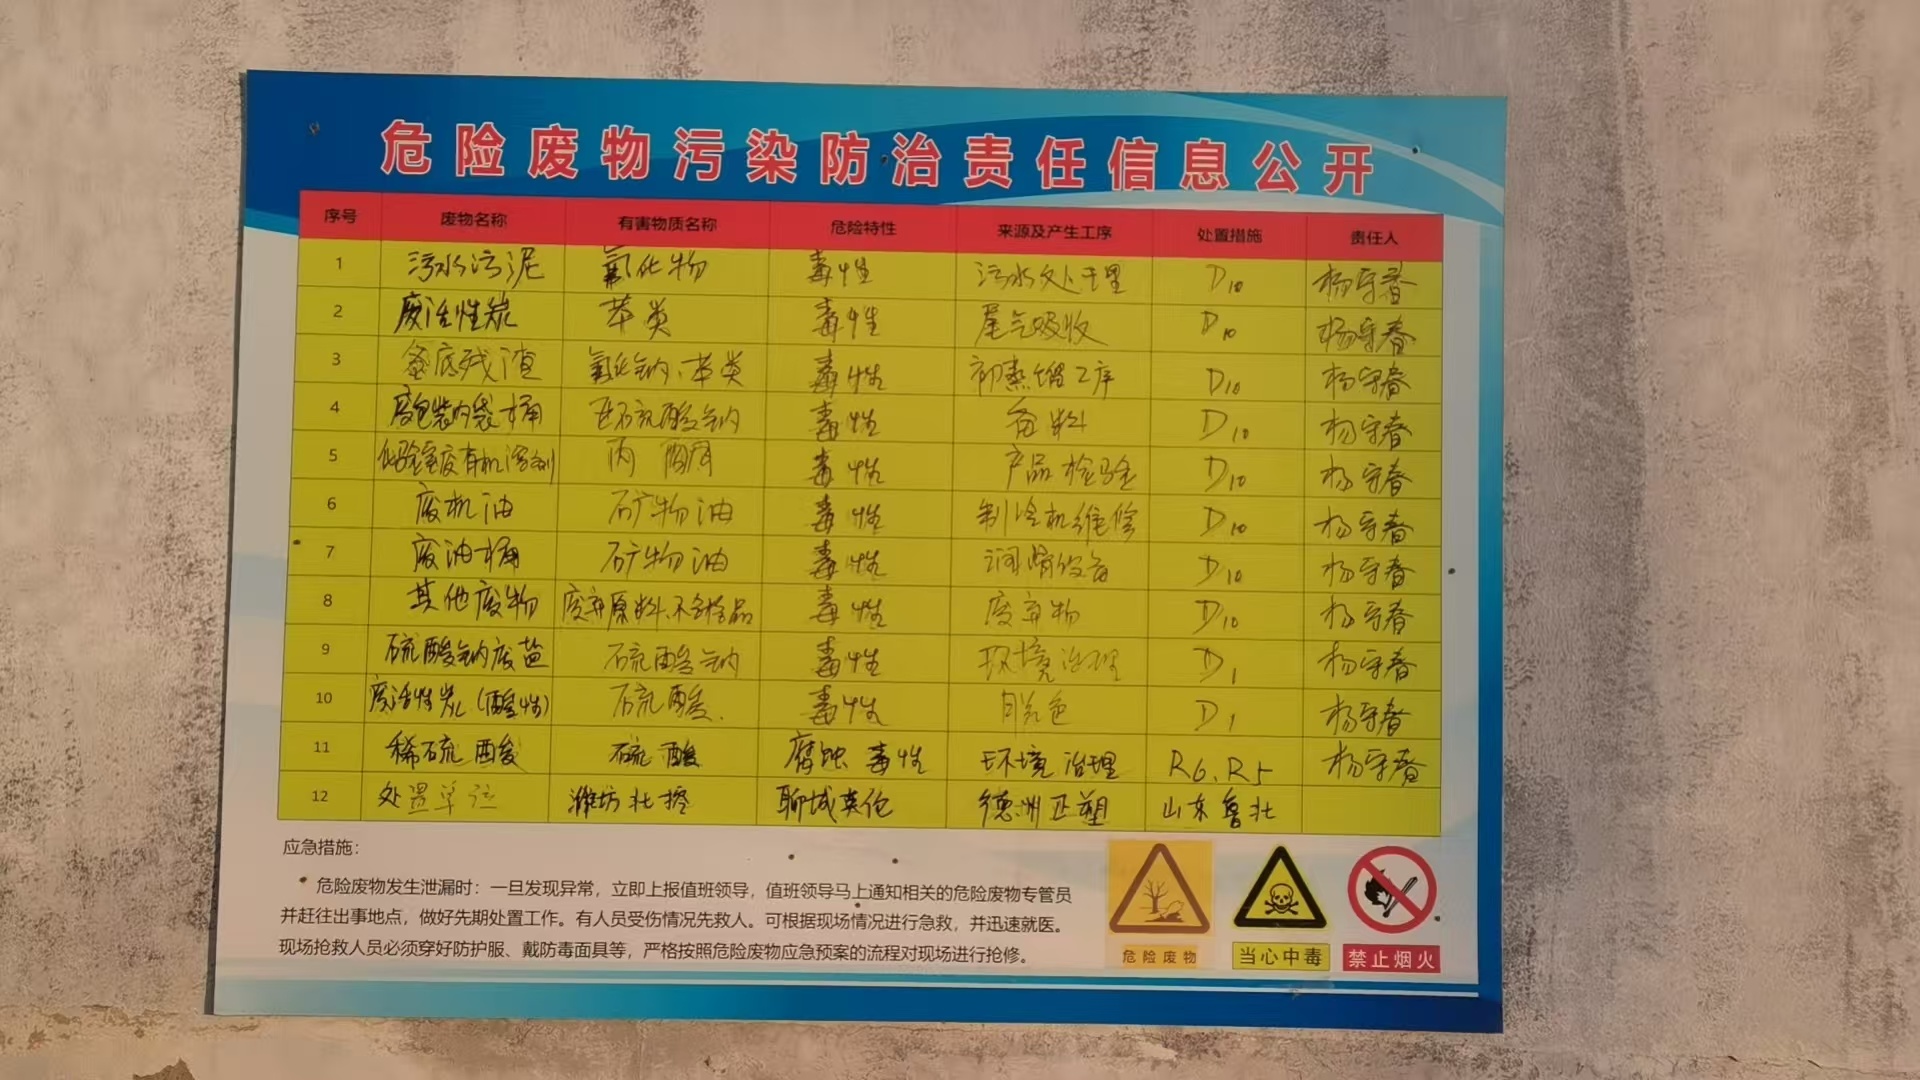 危险废物污染防治责任信息公开
序号 废物名称 有害物质名称 危险特性 来源及产生工序 处置措施 责任人
1 污水污泥 氰化物 毒性 污水处理 D10 杨守春
2 废活性炭 苯类 毒性 尾气吸收 D10 杨守春
3 釜底残渣 氰化钠、苯类 毒性 初蒸馏工序 D10 杨守春
4 废包装内袋桶 亚硫酸钠 毒性 备料 D10 杨守春
5 化验室废有机溶剂 丙酮 毒性 产品检验 D10 杨守春
6 废机油 矿物油 毒性 制冷机维修 D10 杨守春
7 废油桶 矿物油 毒性 润滑设备 D10 杨守春
8 其他废物 废弃原料、不合格品 毒性 废弃物 D10 杨守春
9 硫酸钠废盐 硫酸钠 毒性 环境治理 D1 杨守春
10 废活性炭(酸性) 硫酸 毒性 脱色 D1 杨守春
11 稀硫酸 硫酸 腐蚀 毒性 环境治理 R6、R5 杨守春
12 处置单位 潍坊北控 聊城英伦 德州正塑 山东鲁北
应急措施：
危险废物发生泄漏时：一旦发现异常，立即上报值班领导，值班领导马上通知相关的危险废物专管员
并赶往出事地点，做好先期处置工作。有人员受伤情况先救人。可根据现场情况进行急救，并迅速就医。
现场抢救人员必须穿好防护服、戴防毒面具等，严格按照危险废物应急预案的流程对现场进行抢修。
危险废物 当心中毒 禁止烟火